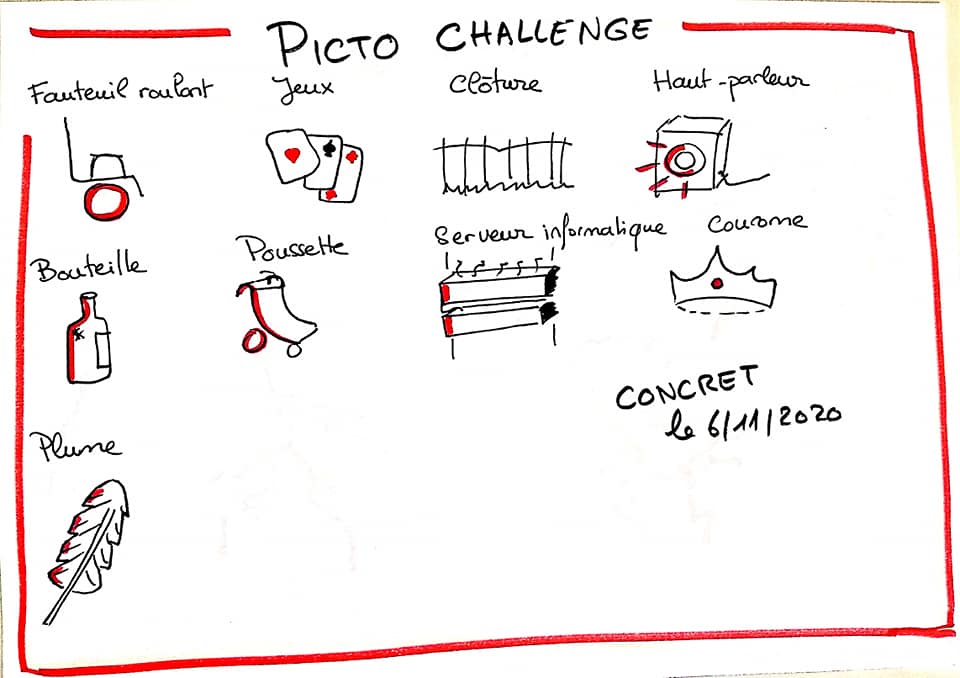 PICTO CHALLENGE
Fauteuil roulant
Jeux
Clôture
Haut-parleur
Bouteille
Poussette
Serveur informatique
Couronne
CONCRET
le 6/11/2020
Plume